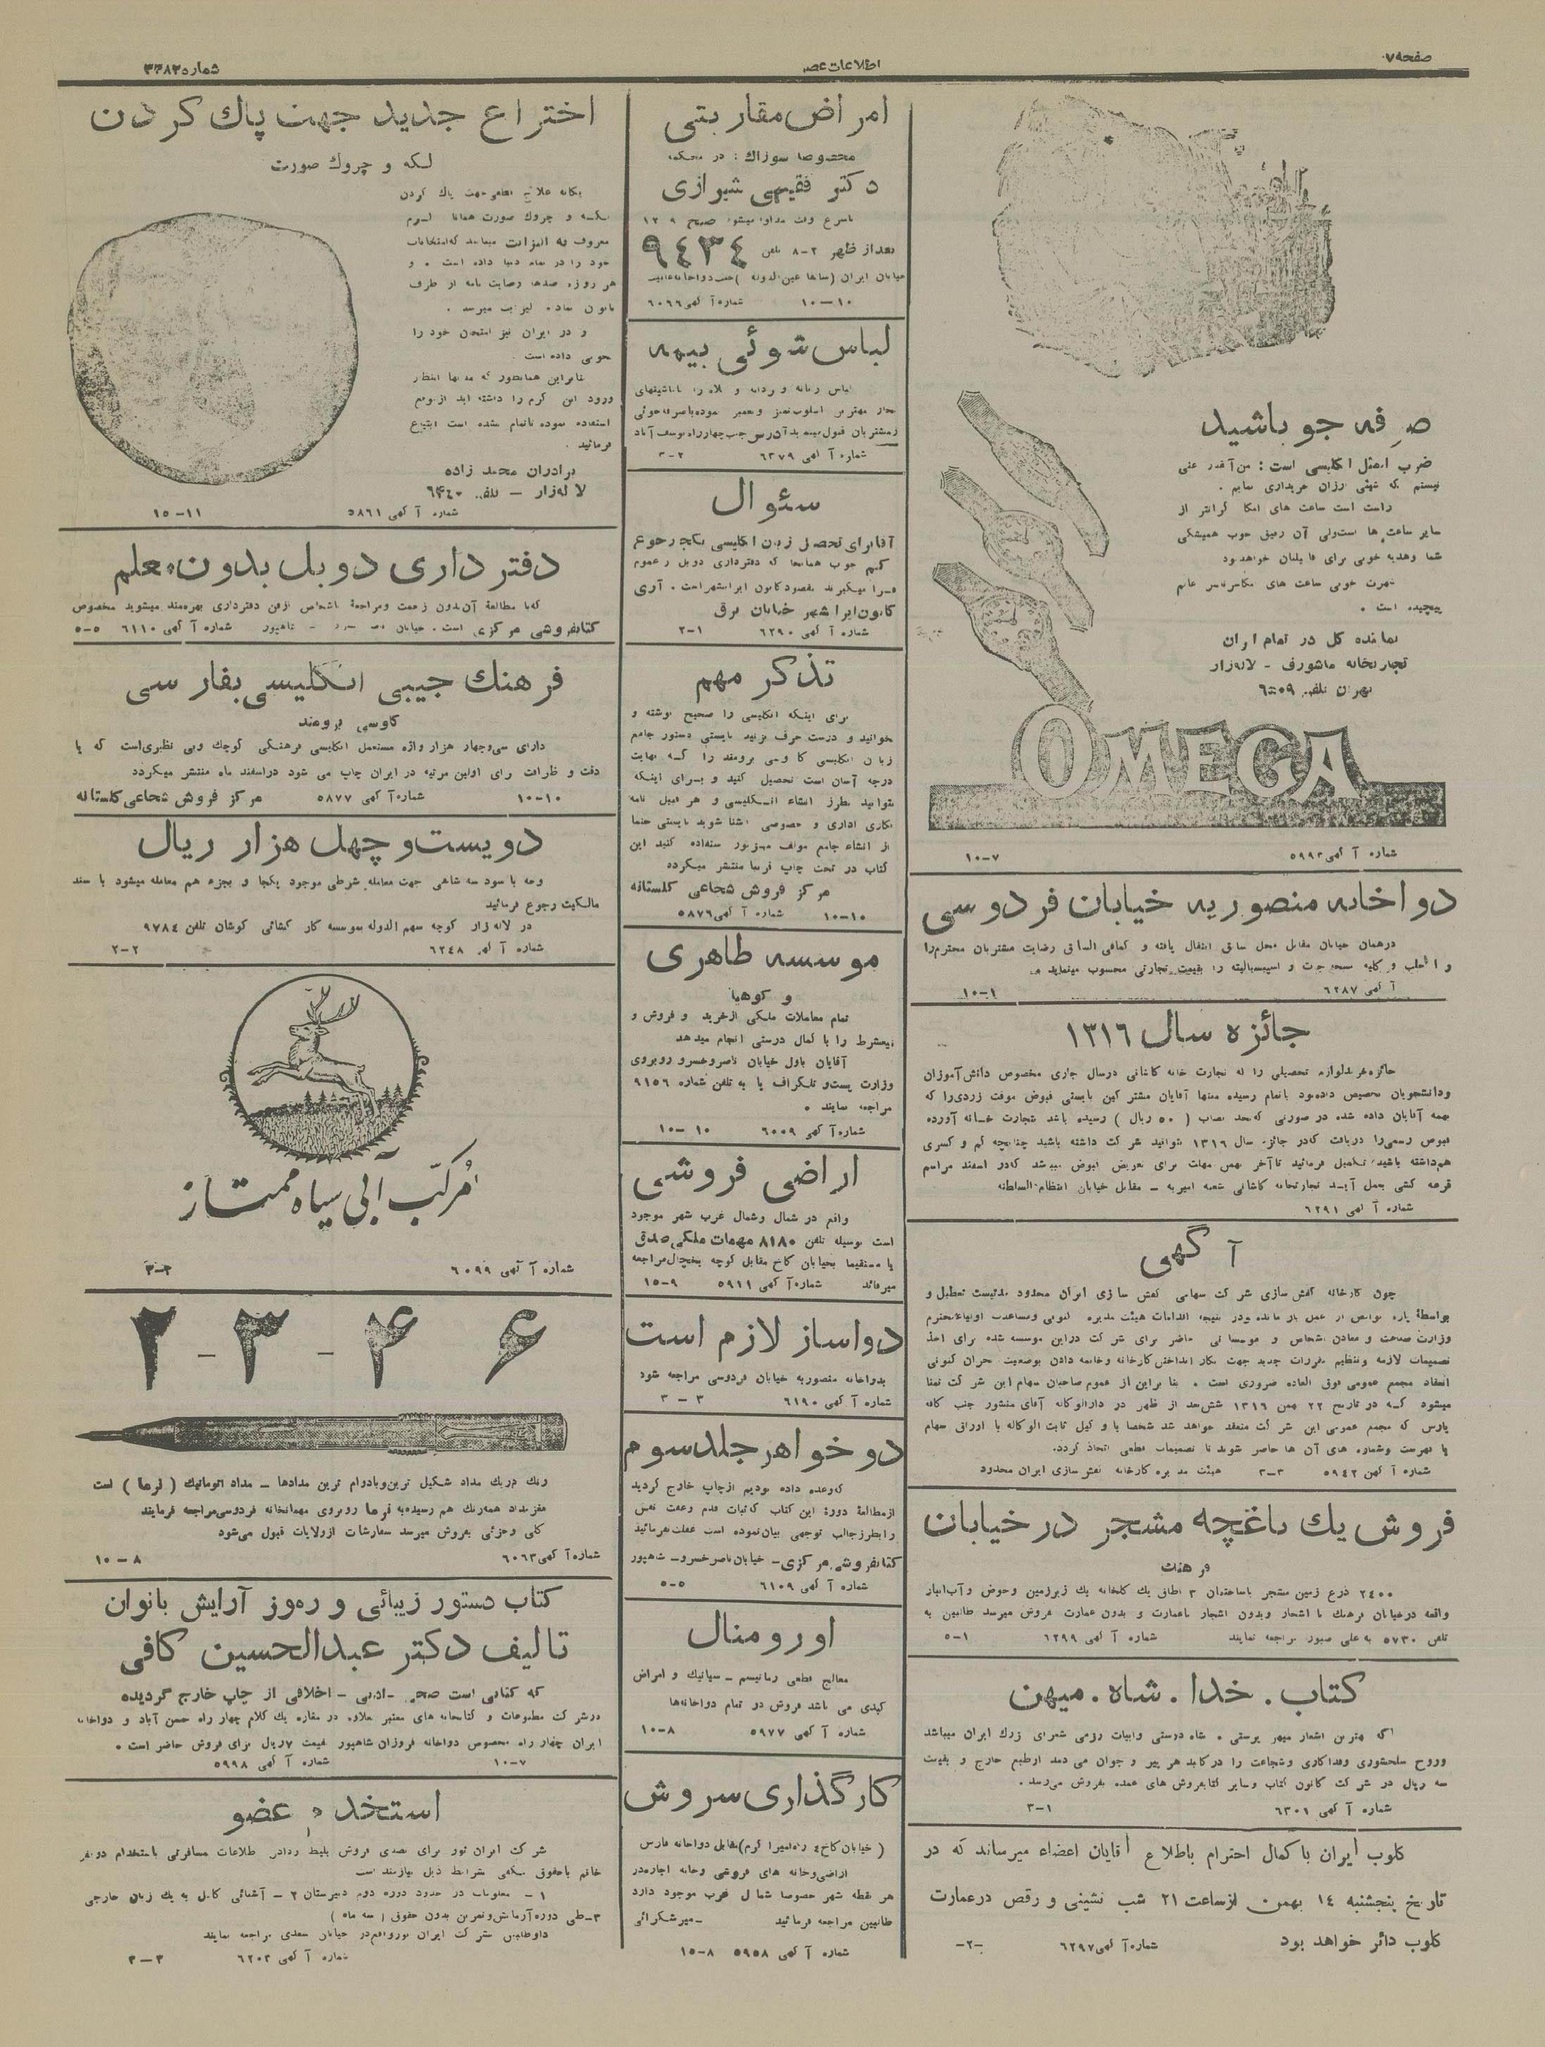 صفحه ۷
اطلاعات عصر
شماره ۳۳۸۲
صرفه جو باشید
ضرب المثل انگلیسی است : من آنقدر غنی
نیستم که شیئی ارزان خریداری نمایم .
راست است ساعت های امگا گرانتر از
سایر ساعت ها است ولی آن رفیق خوب همیشگی
شما وهدیه خوبی برای فامیلتان خواهد بود
شهرت خوبی ساعت های مگا سرتاسر عالم
پیچیده است .
نماینده کل در تمام ایران
تجارتخانه ماشورف - لاله زار
تهران تلفن ۶۵۰۹
OMEGA
شماره آگهی ۵۹۹۳ ۷-۱۰
دواخانه منصوریه خیابان فردوسی
درهمان خیابان مقابل محل سابق انتقال یافته و کمافی السابق رضایت مشتریان محترم را
جلب و کلیه نسخه جات و اسپسیالیته را بقیمت تجارتی محسوب مینماید
آگهی ۶۲۸۷ ۱-۱۰
جائزه سال ۱۳۱۶
جائزه خرید لوازم تحصیلی را که تجارت خانه کاشانی درسال جاری مخصوص دانش آموزان
ودانشجویان تخصیص داده بود باتمام رسیده منتها آقایان مشترکین بایستی قبوض موقت زردی را که
بهمه آقایان داده شده در صورتی که بحد نصاب ( ۵۰ ریال ) رسیده باشد بتجارت خانه آورده
قبوض رسمی را دریافت که در جائزه سال ۱۳۱۶ بتوانید شرکت داشته باشید چنانچه کم و کسری
هم داشته باشید تکمیل فرمائید تا آخر بهمن مهلت برای تعویض قبوض میباشد که در اسفند مراسم
قرعه کشی بعمل آید تجارتخانه کاشانی شعبه امیریه - مقابل خیابان انتظام السلطنه
شماره آگهی ۶۲۹۱
آگهی
چون کارخانه کفش سازی شرکت سهامی کفش سازی ایران محدود مدتیست تعطیل و
بواسطه پاره نواقص از عمل باز مانده ودر نتیجه اقدامات هیئت مدیره کنونی ومساعدت اولیای محترم
وزارت صناعت و معادن اشخاص و موسساتی حاضر برای شرکت دراین موسسه شده برای اخذ
تصمیمات لازمه وتنظیم مقررات جدید جهت بکار انداختن کارخانه وخاتمه دادن بوضعیت بحران کنونی
انعقاد مجمع عمومی فوق العاده ضروری است . بنا براین از عموم صاحبان سهام این شرکت تمنا
میشود که در تاریخ ۲۲ بهمن ۱۳۱۶ شش بعد از ظهر در دارالوکاله آقای منشور جنب کافه
پارس که مجمع عمومی این شرکت منعقد خواهد شد شخصا یا و کیل ثابت الوکاله با اوراق سهام
یا فهرست وشماره های آن ها حاضر شوند تا تصمیمات قطعی اتخاذ گردد.
شماره آگهی ۵۹۴۲ ۳-۳ هیئت مدیره کارخانه کفش سازی ایران محدود
فروش یك باغچه مشجر درخیابان
فرهنك
۲۴۰۰ ذرع زمین مشجر با ساختمان ۳ اطاق یك گلخانه یك زیرزمین وحوض و آب انبار
واقعه درخیابان فرهنك با اشجار وبدون اشجار باعمارت و بدون عمارت فروش میرسد طالبین به
تلفن ۵۷۳۰ به علی صبور مراجعه نمایند شماره آگهی ۶۲۹۹ ۱-۵
کتاب . خدا . شاه . میهن
که بهترین اشعار میهن پرستی . شاه دوستی وابیات رزمی شعرای بزرك ایران میباشد
وروح سلحشوری وفداکاری وشجاعت را در کالبد هر پیر و جوان می دمد ازطبع خارج و بقیمت
سه ریال در شرکت کانون کتاب وسایر کتابفروش های عمده بفروش می رسد.
شماره آگهی ۶۳۰۱ ۱-۳
کلوب ایران با کمال احترام باطلاع آقایان اعضاء میرساند که در
تاریخ پنجشنبه ۱۴ بهمن از ساعت ۲۱ شب نشینی و رقص درعمارت
کلوب دائر خواهد بود شماره آگهی ۶۲۹۷ -۲-
امراض مقاربتی
مخصوصا سوزاك : در محکمه
دکتر فقیهی شیرازی
باسرع وقت مداوا میشود صبح ۹ ۱۲
بعداز ظهر ۲-۸ تلفن ۹۴۳۴
خیابان ایران (سابقا عین الدوله)
شماره آگهی ۶۰۶۶ ۱۰-۱۰
لباس شوئی بیمه
لباس زنانه و مردانه و کلاه را باماشینهای
بخار بهترین اسلوب تمیز وتعمیر نموده باصرفه جوئی
ازمشتریان قبول مینماید آدرس جنب چهارراه یوسف آباد
شماره آگهی ۶۲۷۹ ۲-۳
سئوال
آقا برای تحصیل زبان انگلیسی بکجا رجوع
کنم خوب همانجا که دفترداری دوبل را عموم
فرا میگیرند مقصود کانون ایرانشهر است . آری
کانون ایرانشهر خیابان برق
شماره آگهی ۶۲۹۰ ۱-۲
تذکر مهم
برای اینکه انگلیسی را صحیح نوشته و
خوانید و درست حرف بزنید بایستی دستور جامع
زبان انگلیسی کاوسی برومند را که بنهایت
درجه آسان است تحصیل کنید و برای اینکه
بتوانید بطرز انشاء انگلیسی و هر قبیل نامه
نگاری اداری و خصوصی آشنا شوید بایستی حتما
از انشاء جامع مولف مزبور استفاده کنید این
کتاب در تحت چاپ قریبا منتشر میگردد
مرکز فروش شجاعی گلستانه
شماره آگهی ۵۸۷۶ ۱۰-۱۰
موسسه طاهری
و کوهیا
تمام معاملات ملکی ازخرید و فروش و
بیعشرط را با کمال درستی انجام میدهد
آقایان باول خیابان ناصرخسرو روبروی
وزارت پست و تلگراف یا به تلفن شماره ۹۱۵۶
مراجعه نمایند .
شماره آگهی ۶۰۰۹ ۱۰-۱۰
اراضی فروشی
واقع در شمال وشمال غرب شهر موجود
است بوسیله تلفن ۸۱۸۰ مهمات ملکی صدق
یا مستقیما بخیابان کاخ مقابل کوچه یخچال مراجعه
میرمائد شماره آگهی ۵۹۱۱ ۹-۱۵
دواساز لازم است
بدواخانه منصوریه خیابان فردوسی مراجعه شود
شماره آگهی ۶۱۹۰ ۳-۳
دوخواهر جلد سوم
که وعده داده بودیم ازچاپ خارج گردید
ازمطالعهٔ دورهٔ این کتاب که ثبات قدم وعفت نفس
را بطرز جالب توجهی بیان نموده است غفلت نفرمائید
کتابفروشی مرکزی - خیابان ناصرخسرو - شاهپور
شماره آگهی ۶۱۰۹ ۵-۵
اورومنال
معالج قطعی رماتیسم - سیاتیك و امراض
کبدی می باشد فروش در تمام دواخانه ها
شماره آگهی ۵۹۷۷ ۸-۱۰
کارگذاری سروش
( خیابان کاخ ۴ راه امیراکرم ) مقابل دواخانه فارس
اراضی وخانه های فروشی وخانه اجاره در
هر نقطه شهر خصوصا شمال غرب موجود دارد
طالبین مراجعه فرمائید -میرشکرائی
شماره آگهی ۵۹۵۸ ۸-۱۵
اختراع جدید جهت پاك کردن
لکه و چروك صورت
یگانه علاج قطعی جهت پاك کردن
لکه و چروك صورت همانا کرم
معروف به الیزابت میباشد که امتحانات
خود را در تمام دنیا داده است . و
هر روزه صدها رضایت نامه از طرف
میرسد .
و در ایران نیز امتحان خود را
بخوبی داده است
بنابراین همانطور که مدتها انتظار
ورود این کرم را داشته اید ازموقع
استفاده نموده تا تمام نشده است ابتیاع
فرمائید .
برادران محمد زاده
لاله زار - تلفن ۶۴۴۰
شماره آگهی ۵۸۶۱ ۱۱-۱۵
دفترداری دوبل بدون معلم
که با مطالعهٔ آن بدون زحمت ومراجعهٔ باشخاص ازفن دفترداری بهره مند میشوید مخصوص
کتابفروشی مرکزی است . خیابان ناصرخسرو - شاهپور شماره آگهی ۶۱۱۰ ۵-۵
فرهنك جیبی انگلیسی بفارسی
کاوسی برومند
دارای سی وچهار هزار واژه مستعمل انگلیسی فرهنگی کوچك وبی نظیری است که با
دقت و ظرافت برای اولین مرتبه در ایران چاپ می شود در اسفند ماه منتشر میگردد
۱۰-۱۰ شماره آگهی ۵۸۷۷ مرکز فروش شجاعی گلستانه
دویست و چهل هزار ریال
وجه با سود سه شاهی جهت معامله شرطی موجود یکجا و بجزء هم معامله میشود با سند
مالکیت رجوع فرمائید
در لاله زار کوچه سهم الدوله موسسه کار گشائی کوشان تلفن ۹۷۸۴
شماره آگهی ۶۲۴۸ ۲-۲
مُرکّب آبی سیاه ممتاز
شماره آگهی ۶۰۹۹ ۳-۳
۶ ۴ - ۳ - ۲
رنك مداد شکیل ترین وبادوام ترین مدادها - مداد اتوماتیك ( نرما ) است
مغز مداد همه رنك هم رسیده به نرما روبروی مهمانخانه فردوسی مراجعه فرمایند
کلی وجزئی بفروش میرسد سفارشات ازولایات قبول می شود
شماره آگهی ۶۰۶۳ ۸-۱۰
کتاب دستور زیبائی و رموز آرایش بانوان
تالیف دکتر عبدالحسین کافی
که کتابی است صحی - ادبی - اخلاقی از چاپ خارج گردیده
درشرکت مطبوعات و کتابخانه های معتبر بعلاوه در مغازه یك کلام چهار راه حسن آباد و دواخانه
ایران چهار راه مخصوص دواخانه فروزان شاهپور قیمت ۷ ریال برای فروش حاضر است .
۷-۱۰ شماره آگهی ۵۹۹۸
استخدام عضو
شرکت ایران تور برای تصدی فروش بلیط ودادن اطلاعات مسافرتی باستخدام دو نفر
خانم باحقوق مکفی بشرایط ذیل نیازمند است
۱ - معلومات در حدود دوره دوم دبیرستان ۲ - آشنائی کامل به یك زبان خارجی
۳-طی دوره آزمایش وتمرین بدون حقوق ( سه ماه )
داوطلبین بشرکت ایران تور واقع در خیابان سعدی مراجعه نمایند
شماره آگهی ۶۲۰۳ ۳-۳